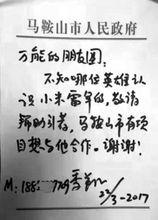 马鞍山市人民政府
万能的朋友圈:
不知哪位英雄认
识小米雷军的,敬请
帮助引荐,马鞍山市有项
目想与他合作。谢谢!
M:188
23/3-2017